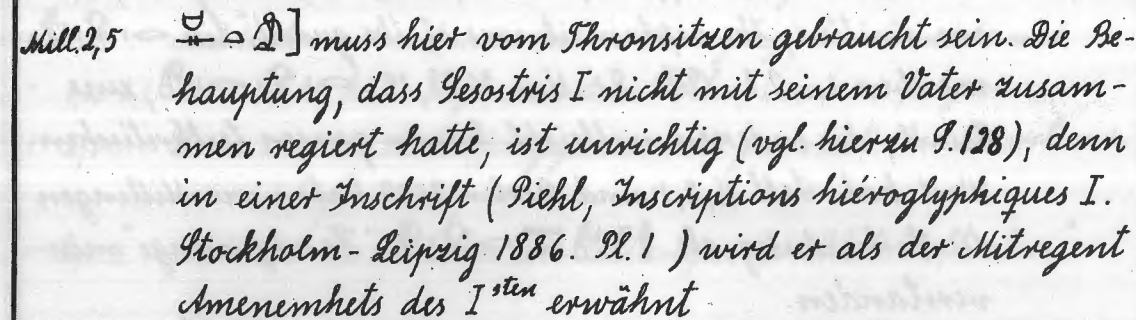 Mill. 2,5 ] muss hier vom Thronsitzen gebraucht sein. Die Be-
hauptung, dass Sesostris I nicht mit seinem Vater zusam-
men regiert hatte, ist unrichtig (vgl. hierzu S. 128), denn
in einer Inschrift ( Piehl, Inscriptions hiéroglyphiques I.
Stockholm - Leipzig 1886. Pl. 1 ) wird er als der Mitregent
Amenemhets des I sten erwähnt